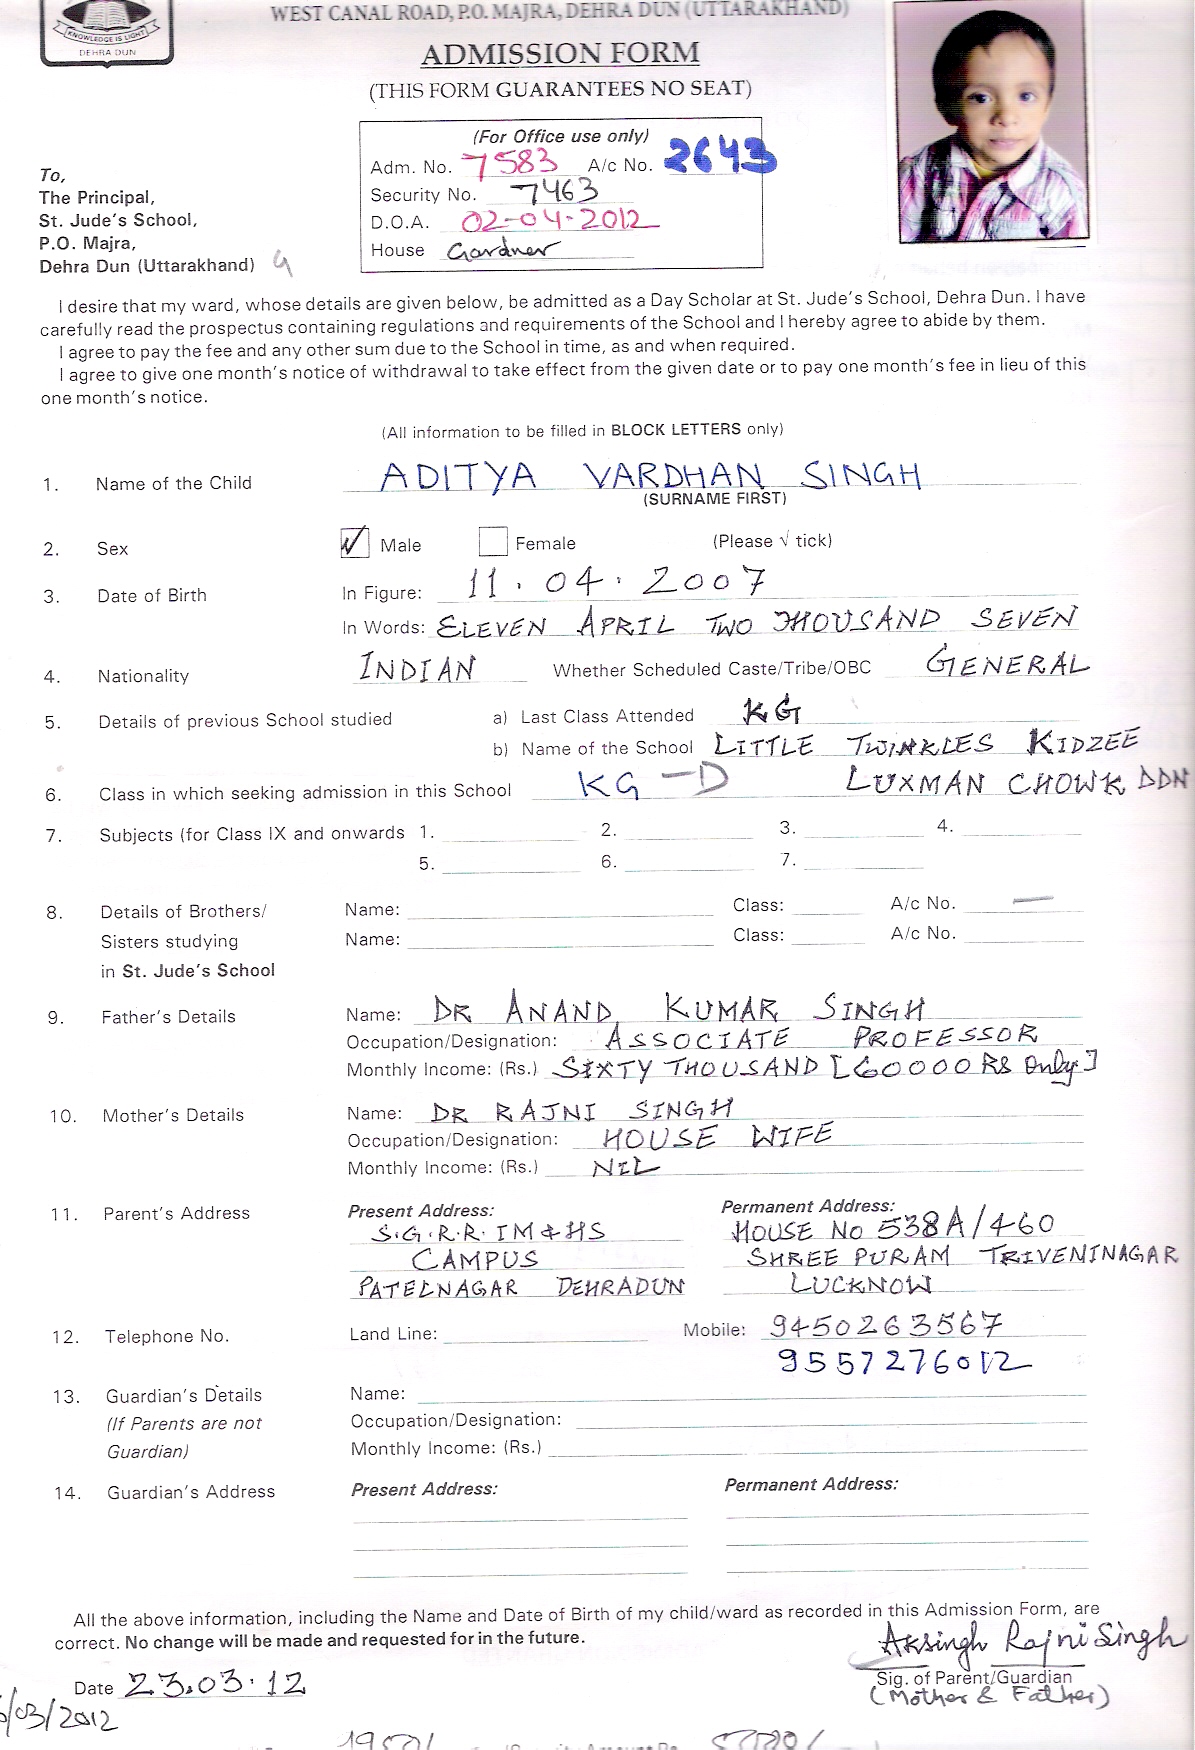 KNOWLEDGE IS LIGHT
DEHRA DUN
WEST CANAL ROAD, P.O. MAJRA, DEHRA DUN (UTTARAKHAND)
ADMISSION FORM
(THIS FORM GUARANTEES NO SEAT)
(For Office use only)
Adm. No. 7583 A/c No. 2643
Security No. 7463
D.O.A. 02-04-2012
House Gardner
To,
The Principal,
St. Jude's School,
P.O. Majra,
Dehra Dun (Uttarakhand)
I desire that my ward, whose details are given below, be admitted as a Day Scholar at St. Jude's School, Dehra Dun. I have
carefully read the prospectus containing regulations and requirements of the School and I hereby agree to abide by them.
I agree to pay the fee and any other sum due to the School in time, as and when required.
I agree to give one month's notice of withdrawal to take effect from the given date or to pay one month's fee in lieu of this
one month's notice.
(All information to be filled in BLOCK LETTERS only)
1. Name of the Child ADITYA VARDHAN SINGH
(SURNAME FIRST)
2. Sex Male Female (Please √ tick)
3. Date of Birth In Figure: 11.04.2007
In Words: ELEVEN APRIL TWO THOUSAND SEVEN
4. Nationality INDIAN Whether Scheduled Caste/Tribe/OBC GENERAL
5. Details of previous School studied a) Last Class Attended KG
b) Name of the School LITTLE TWINKLES KIDZEE
LUXMAN CHOWK DDN
6. Class in which seeking admission in this School KG - D
7. Subjects (for Class IX and onwards 1. 2. 3. 4.
5. 6. 7.
8. Details of Brothers/ Name: Class: A/c No. —
Sisters studying Name: Class: A/c No.
in St. Jude's School
9. Father's Details Name: DR ANAND KUMAR SINGH
Occupation/Designation: ASSOCIATE PROFESSOR
Monthly Income: (Rs.) SIXTY THOUSAND [60000 RS Only]
10. Mother's Details Name: DR RAJNI SINGH
Occupation/Designation: HOUSE WIFE
Monthly Income: (Rs.) NIL
11. Parent's Address Present Address: Permanent Address:
S.G.R.R. IM & HS HOUSE No 538A/460
CAMPUS SHREE PURAM TRIVENINAGAR
PATELNAGAR DEHRADUN LUCKNOW
12. Telephone No. Land Line: Mobile: 9450263567
9557276012
13. Guardian's Details Name:
(If Parents are not Occupation/Designation:
Guardian) Monthly Income: (Rs.)
14. Guardian's Address Present Address: Permanent Address:
All the above information, including the Name and Date of Birth of my child/ward as recorded in this Admission Form, are
correct. No change will be made and requested for in the future.
AKSingh Rajni Singh
Sig. of Parent/Guardian
(Mother & Father)
Date 23.03.12
/03/2012